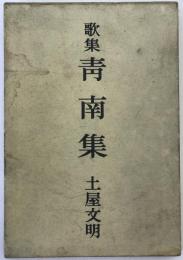 歌集
青南集
土屋文明